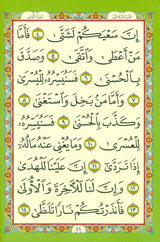 إِنَّ سَعْيَكُمْ لَشَتَّىٰ ٤ فَأَمَّا
مَنْ أَعْطَىٰ وَاتَّقَىٰ ٥ وَصَدَّقَ
بِالْحُسْنَىٰ ٦ فَسَنُيَسِّرُهُ لِلْيُسْرَىٰ
٧ وَأَمَّا مَنْ بَخِلَ وَاسْتَغْنَىٰ ٨
وَكَذَّبَ بِالْحُسْنَىٰ ٩ فَسَنُيَسِّرُهُ
لِلْعُسْرَىٰ ١٠ وَمَا يُغْنِي عَنْهُ مَالُهُ
إِذَا تَرَدَّىٰ ١١ إِنَّ عَلَيْنَا لَلْهُدَىٰ
١٢ وَإِنَّ لَنَا لَلْآخِرَةَ وَالْأُولَىٰ
١٣ فَأَنْذَرْتُكُمْ نَارًا تَلَظَّىٰ